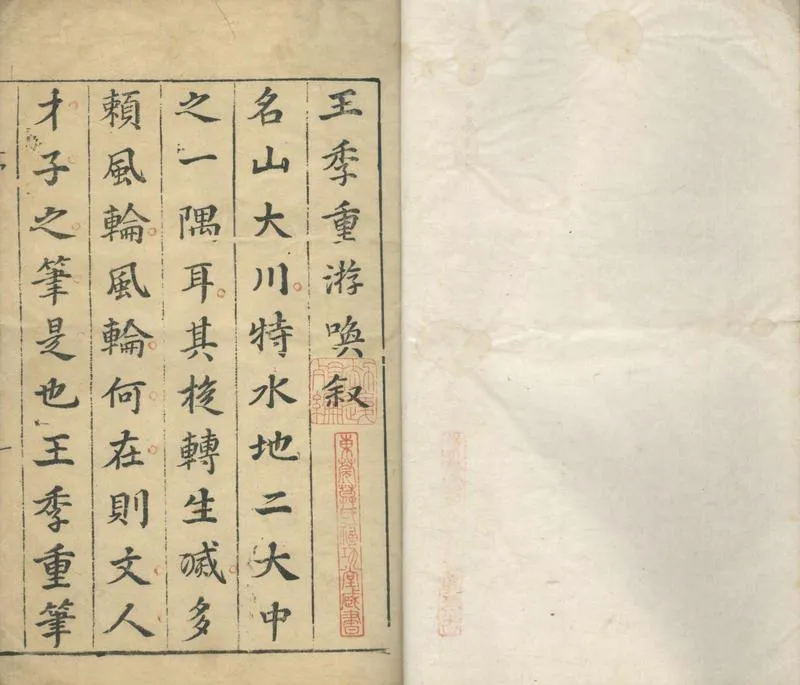 王季重游喚叙
名山大川特水地二大中
之一隅耳其旋轉生滅多
賴風輪風輪何在則文人
才子之筆是也王季重筆
東莞莫氏福功堂藏書